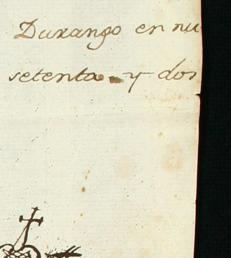 Durango en nu
setenta y dos